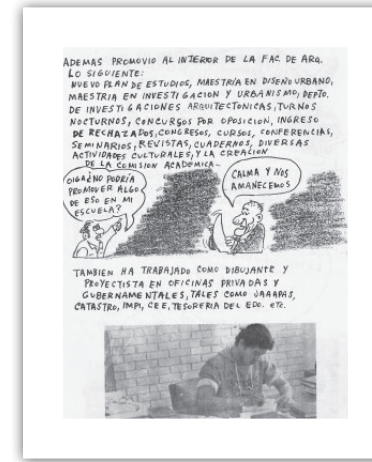 ADEMAS PROMOVIO AL INTERIOR DE LA FAC. DE ARQ.
LO SIGUIENTE:
NUEVO PLAN DE ESTUDIOS, MAESTRÍA EN DISEÑO URBANO,
MAESTRIA EN INVESTIGACION Y URBANISMO, DEPTO.
DE INVESTIGACIONES ARQUITECTONICAS, TURNOS
NOCTURNOS, CONCURSOS POR OPOSICION, INGRESO
DE RECHAZADOS, CONGRESOS, CURSOS, CONFERENCIAS,
SEMINARIOS, REVISTAS, CUADERNOS, DIVERSAS
ACTIVIDADES CULTURALES, Y LA CREACION
DE LA COMISION ACADEMICA-
OIGA ¿NO PODRÍA
PROMOVER ALGO
DE ESO EN MI
ESCUELA?
CALMA Y NOS
AMANECEMOS
TAMBIEN HA TRABAJADO COMO DIBUJANTE Y
PROYECTISTA EN OFICINAS PRIVADAS Y
GUBERNAMENTALES, TALES COMO JAAAPAS,
CATASTRO, IMPI, CEE, TESORERIA DEL EDO. etc.